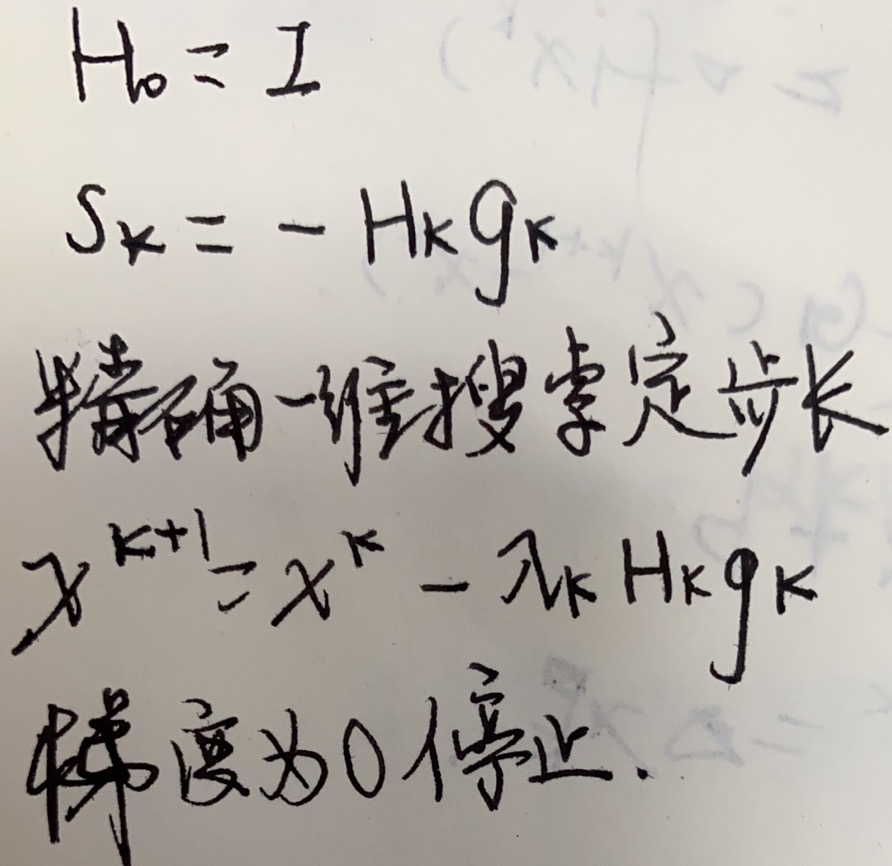 H₀ = I
Sₖ = - Hₖgₖ
精确一维搜索定步长
xᵏ⁺¹ = xᵏ - λₖHₖgₖ
梯度为0停止.